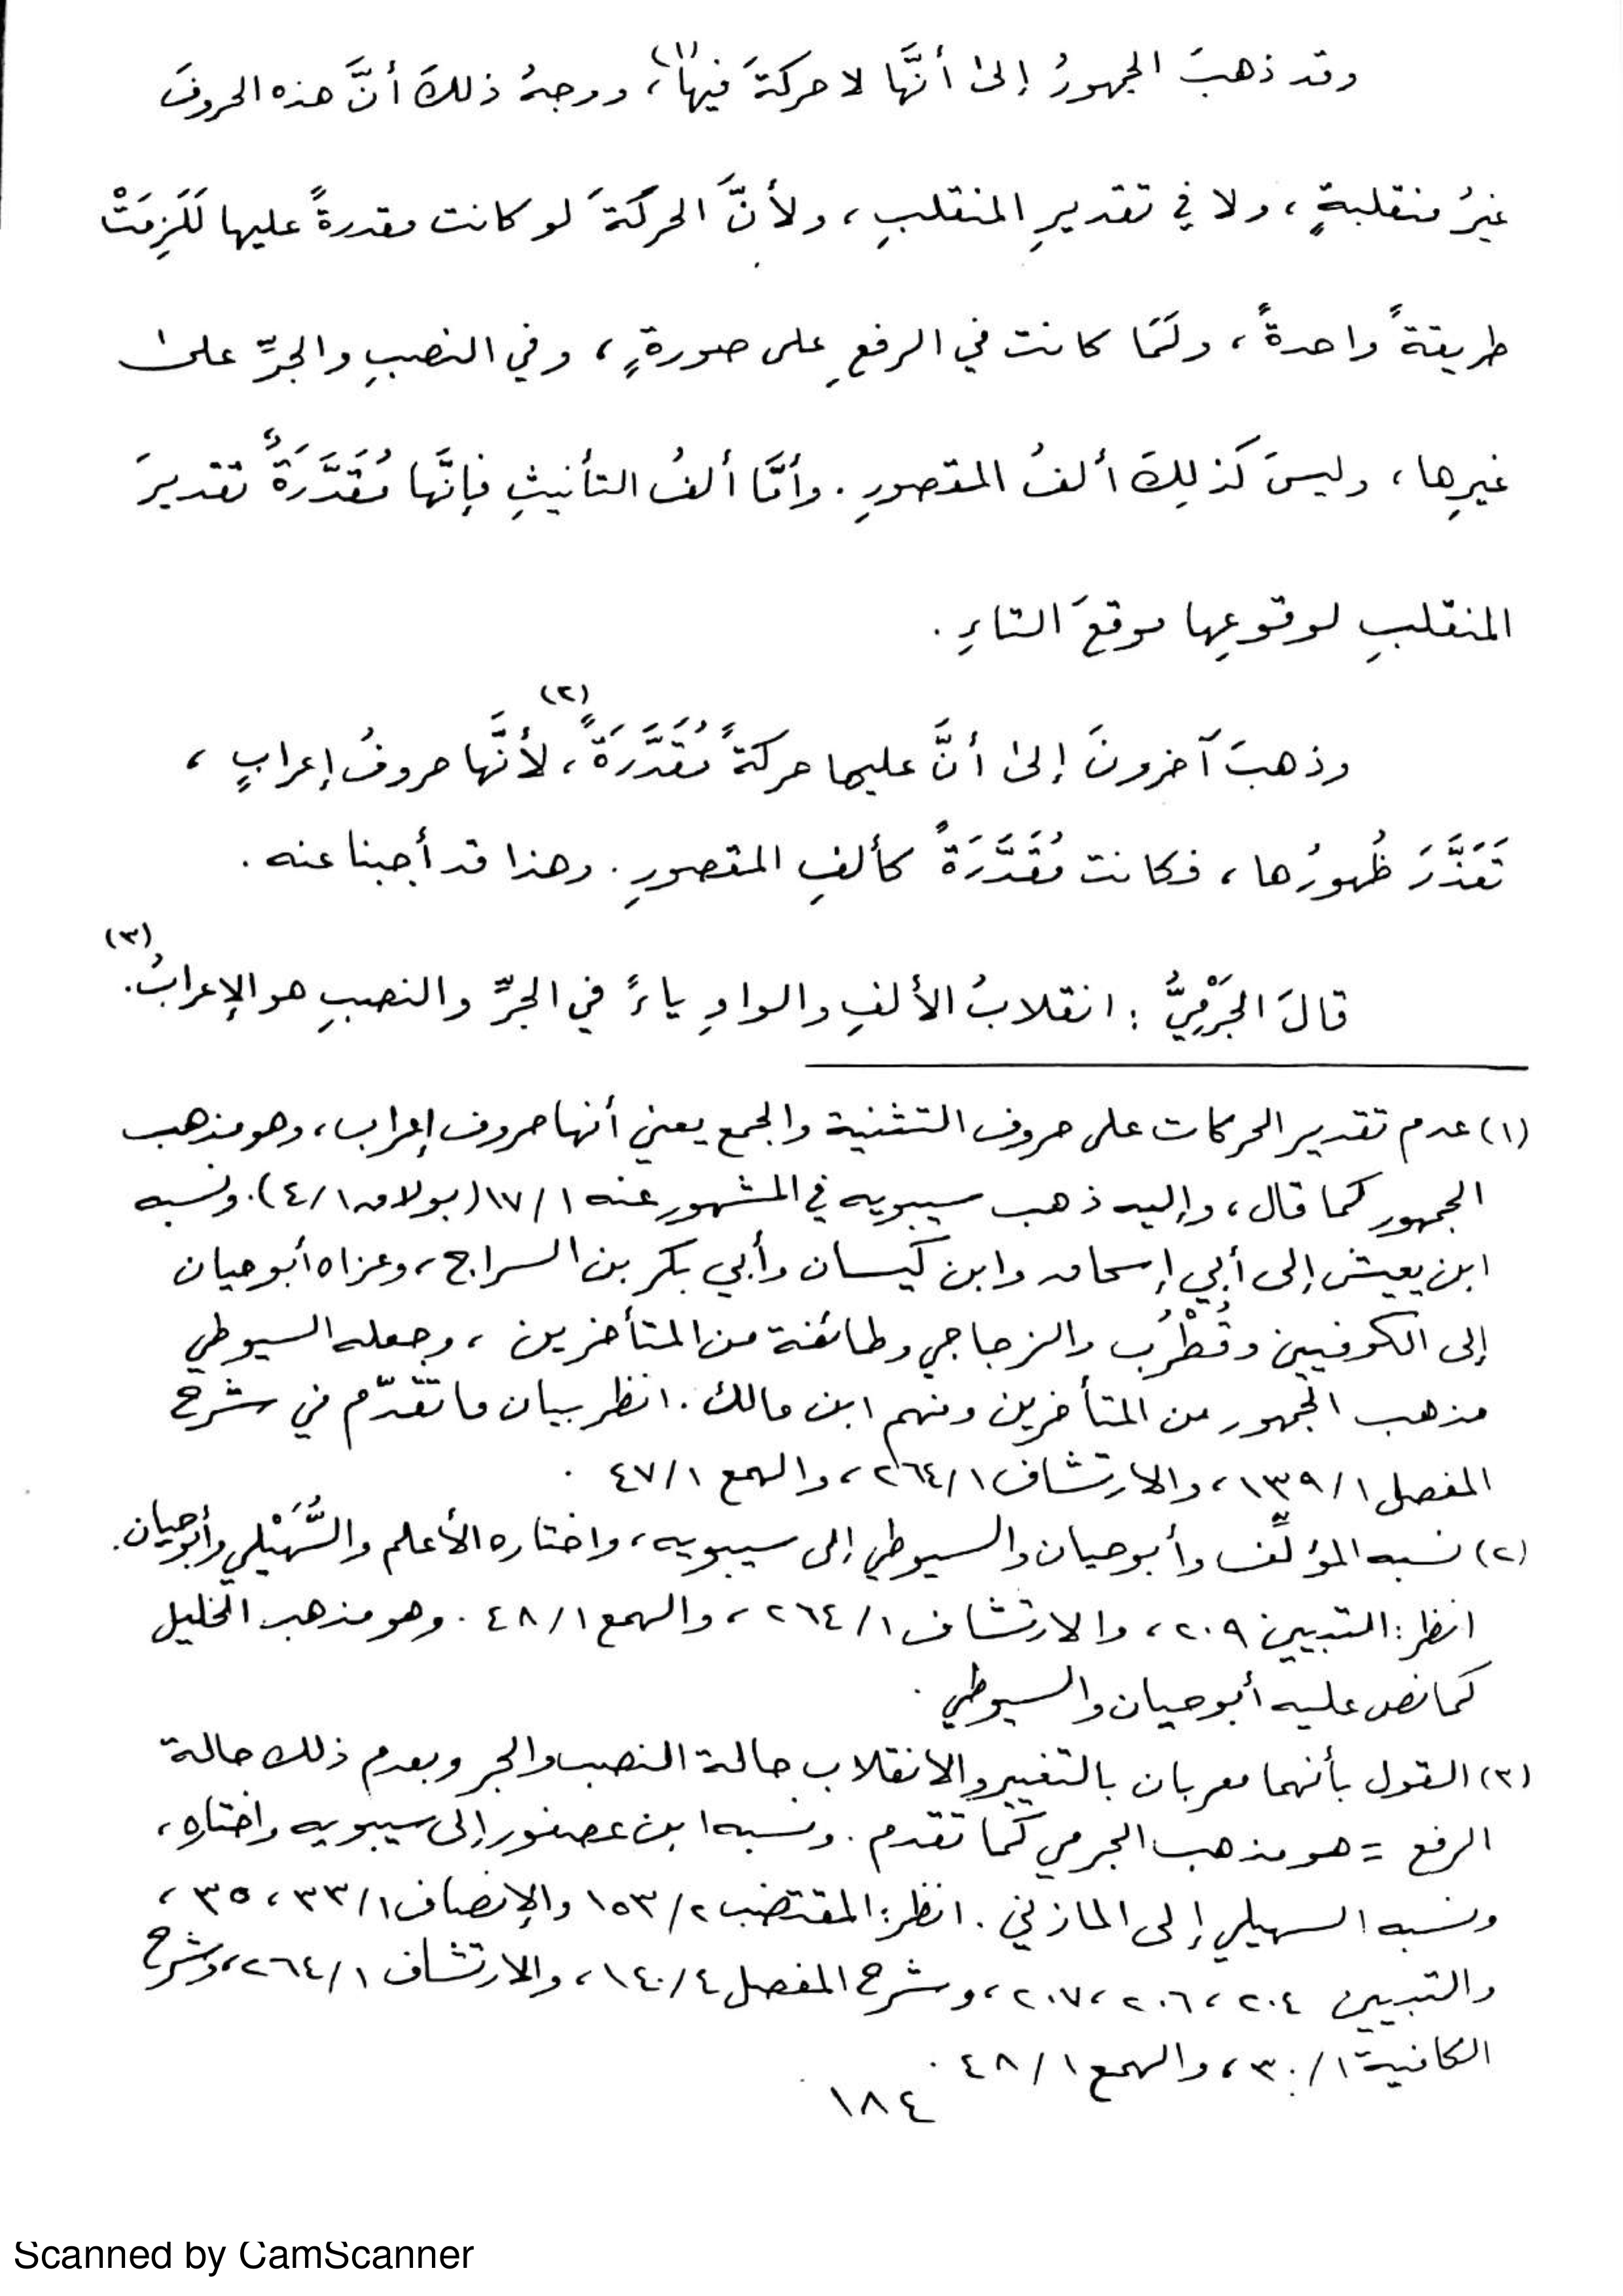 وقد ذهبَ الجمهورُ إلىٰ أنَّها لا حركةَ فيها(١)، ووجهُ ذلكَ أنَّ هذه الحروفَ
غيرُ منقلبةٍ، ولا في تقديرِ المنقلبِ، ولأنَّ الحركةَ لو كانت مقدرةً عليها لَلَزِمَتْ
طريقةً واحدةً، ولَمَا كانت في الرفعِ على صورةٍ، وفي النصبِ والجرِّ علىٰ
غيرِها، وليسَ كَذلِكَ ألفُ المقصورِ. وأمَّا ألفُ التأنيثِ فإنَّها مُقَدَّرَةٌ تقديرَ
المنقلبِ لوقوعِها موقعَ التاءِ.
وذهبَ آخرونَ إلىٰ أنَّ عليها حركةً مُقَدَّرَةً(٢)، لأنَّها حروفُ إعرابٍ،
تَعَذَّرَ ظُهورُها، فكانت مُقَدَّرَةً كألفِ المقصورِ. وهذا قد أجبنا عنه.
قالَ الجَرْمِيُّ: انقلابُ الألفِ والواوِ ياءً في الجرِّ والنصبِ هو الإعرابُ(٣).
(١) عدم تقدير الحركات على حروف التثنية والجمع يعني أنها حروف إعراب، وهو مذهب
الجمهور كما قال، وإليه ذهب سيبويه في المشهور عنه ١/١٧ (بولاق ١/٤). ونسبه
ابن يعيش إلى أبي إسحاق وابن كيسان وأبي بكر بن السراج، وعزاه أبو حيان
إلى الكوفيين وقُطْرُب والزجاجي وطائفة من المتأخرين، وجعله السيوطي
مذهب الجمهور من المتأخرين ومنهم ابن مالك. انظر بيان ما تقدّم في شرح
المفصل ١/١٣٩، والارتشاف ١/٢٦٤، والهمع ١/٤٧.
(٢) نسبه المؤلِّف وأبو حيان والسيوطي إلى سيبويه، واختاره الأعلم والسُّهَيْلي وأبو حيان.
انظر: التبيين ٢٠٩، والارتشاف ١/٢٦٤، والهمع ١/٤٨. وهو مذهب الخليل
كما نص عليه أبو حيان والسيوطي.
(٣) القول بأنهما معربان بالتغيير والانقلاب حالة النصب والجر وبعدم ذلك حالة
الرفع = هو مذهب الجرمي كما تقدم. ونسبه ابن عصفور إلى سيبويه واختاره،
ونسبه السهيلي إلى المازني. انظر: المقتضب ٢/١٥٣ والإنصاف ١/٣٣، ٣٥،
والتبيين ٢٠٤، ٢٠٦، ٢٠٧، وشرح المفصل ٤/١٤٠، والارتشاف ١/٢٦٤، وشرح
الكافية ١/٣٠، والهمع ١/٤٨.
١٨٤
Scanned by CamScanner